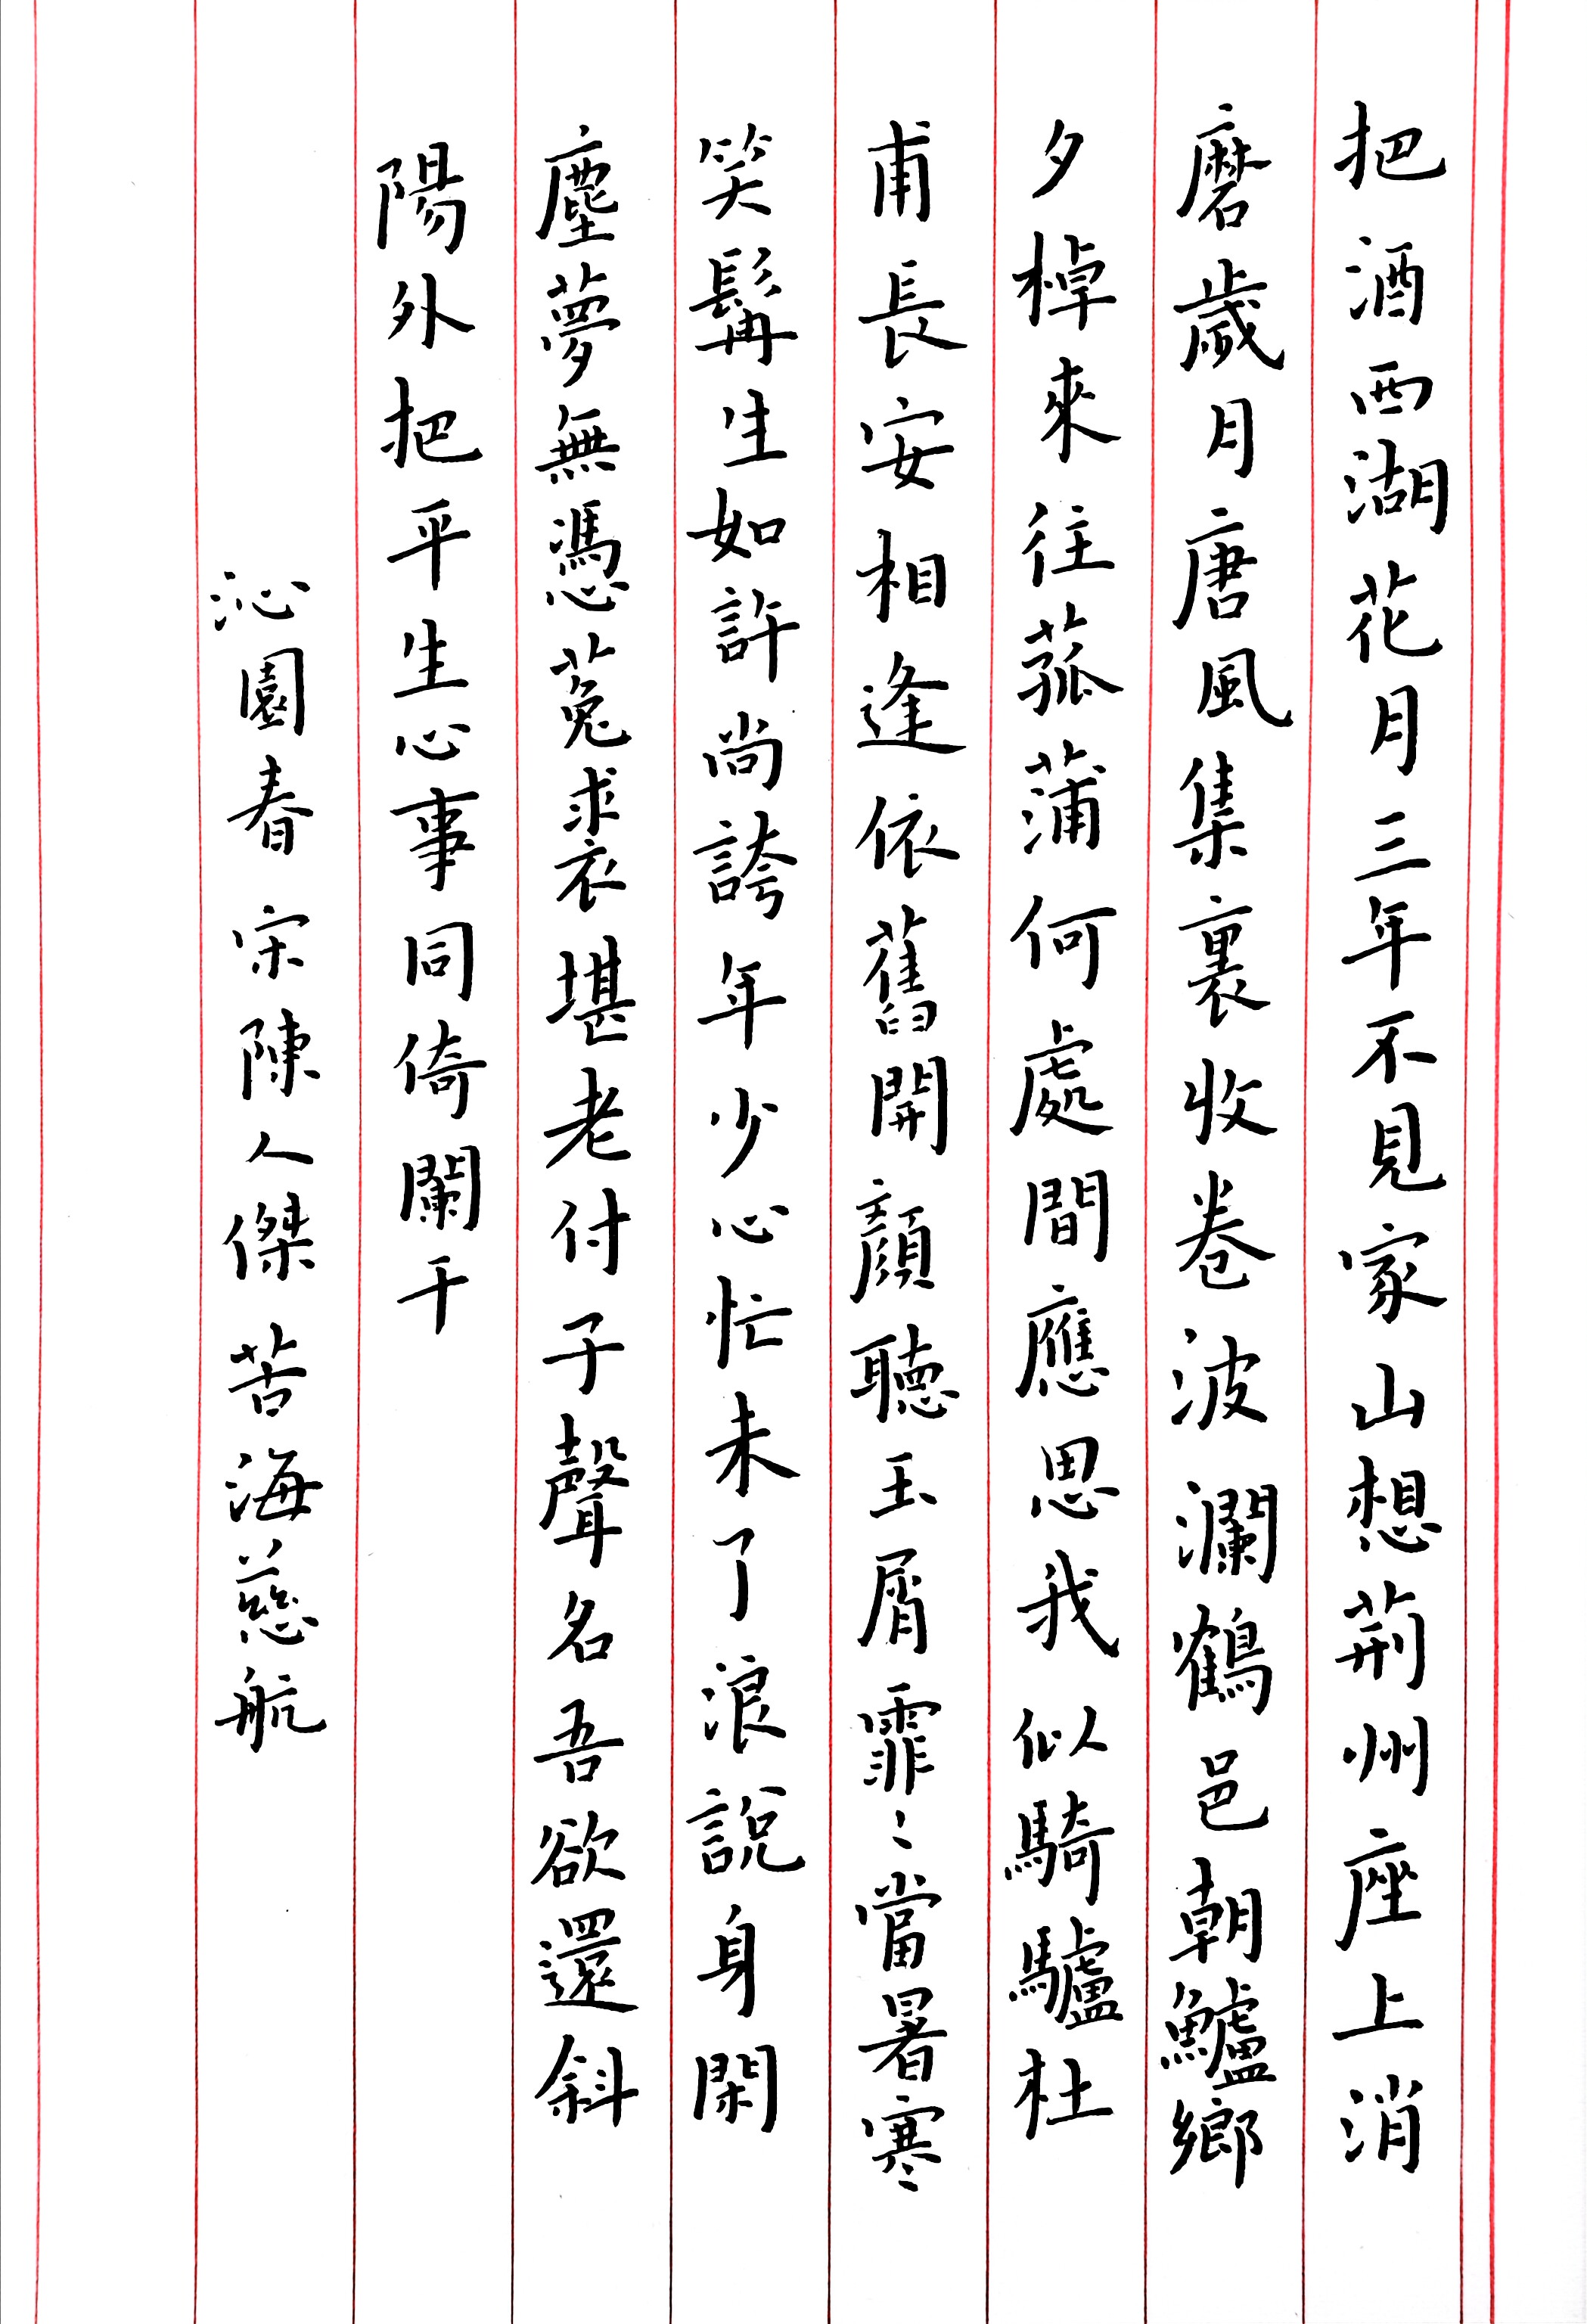 把酒西湖花月三年不見家山想荊州座上消
磨歲月唐風集裏收卷波瀾鶴邑朝鱸鄉
夕棹來往菰蒲何處間應思我似騎驢杜
甫長安相逢依舊開顏聽玉屑霏〻當暑寒
笑髯生如許尚誇年少心忙未了浪說身閑
塵夢無憑菟裘堪老付子聲名吾欲還斜
陽外把平生心事同倚闌干
沁園春 宋 陳人傑 苦海慈航